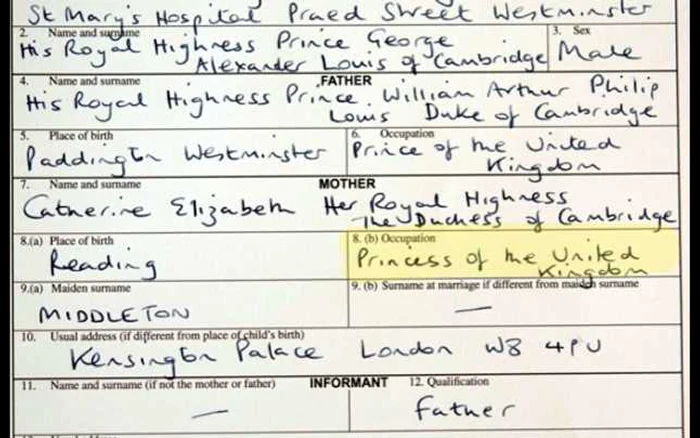 St Mary's Hospital Praed Street Westminster
2. Name and surname
3. Sex
His Royal Highness Prince George
Alexander Louis of Cambridge
Male
4. Name and surname
FATHER
His Royal Highness Prince William Arthur Philip
Louis Duke of Cambridge
5. Place of birth
6. Occupation
Paddington Westminster
Prince of the United
Kingdom
7. Name and surname
MOTHER
Catherine Elizabeth Her Royal Highness
The Duchess of Cambridge
8.(a) Place of birth
8. (b) Occupation
Reading
Princess of the United
Kingdom
9.(a) Maiden surname
9. (b) Surname at marriage if different from maiden surname
MIDDLETON
—
10. Usual address (if different from place of child's birth)
Kensington Palace London W8 4PU
11. Name and surname (if not the mother or father)
INFORMANT
12. Qualification
—
Father